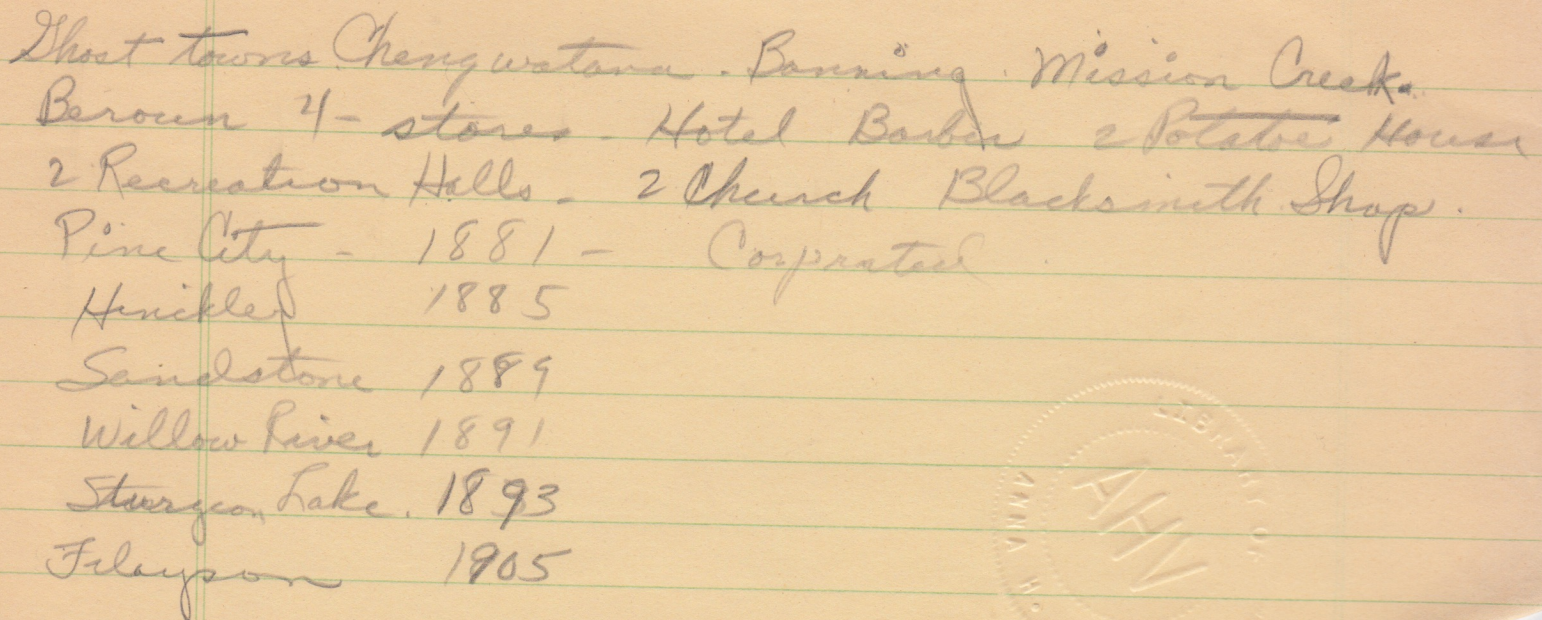 Ghost towns. Chengwatana. Banning. Mission Creek.
Beroun 4- stores - Hotel Barber 2 Potatoe House
2 Recreation Halls - 2 Church Blacksmith Shop.
Pine City - 1881 - Corprated
Hinckley 1885
Sandstone 1889
Willow River 1891
Sturgeon Lake. 1893
Filayson 1905
LIBRARY OF
ANNA H.
AHV